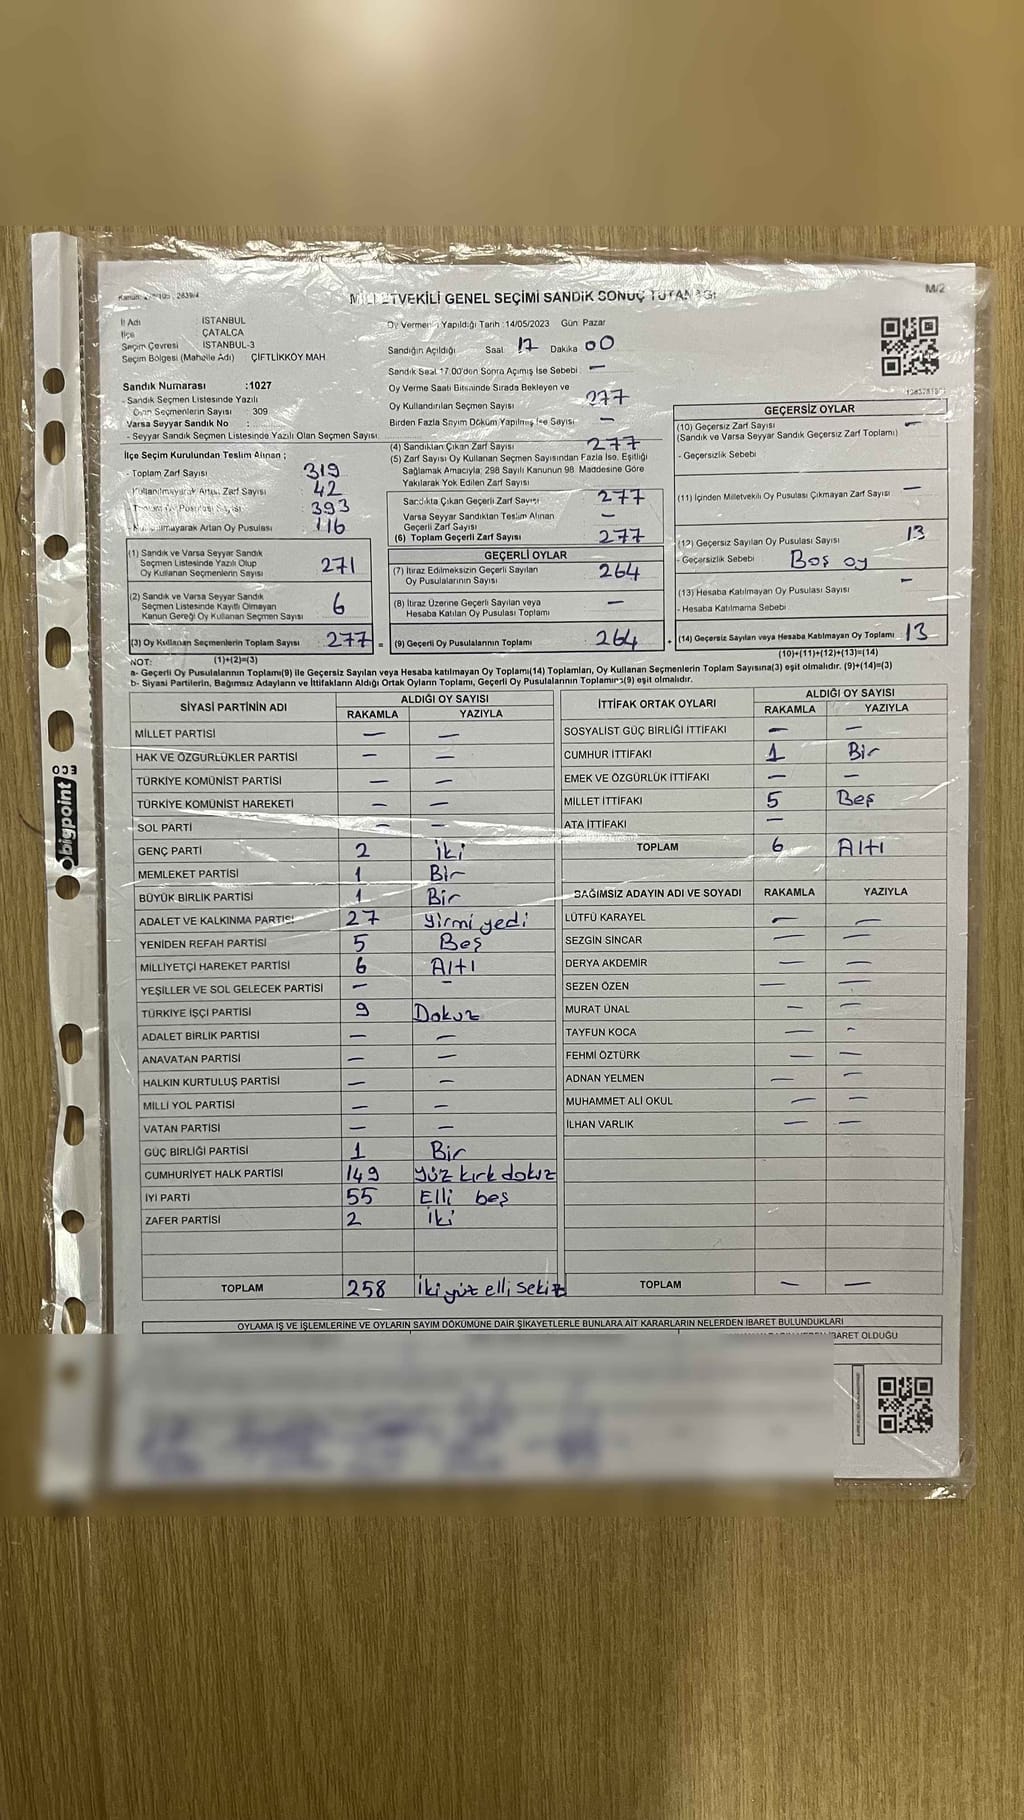 MİLLETVEKİLİ GENEL SEÇİMİ SANDIK SONUÇ TUTANAĞI
M/2
İl Adı İSTANBUL
İlçe ÇATALCA
Seçim Çevresi İSTANBUL-3
Seçim Bölgesi (Mahalle Adı) ÇİFTLİKKÖY MAH
Sandık Numarası :1027
- Sandık Seçmen Listesinde Yazılı
Olan Seçmenlerin Sayısı : 309
Varsa Seyyar Sandık No :
- Seyyar Sandık Seçmen Listesinde Yazılı Olan Seçmen Sayısı
İlçe Seçim Kurulundan Teslim Alınan ;
- Toplam Zarf Sayısı 319
- Kullanılmayarak Artan Zarf Sayısı 42
- Toplam Oy Pusulası Sayısı 393
- Kullanılmayarak Artan Oy Pusulası 116
(1) Sandık ve Varsa Seyyar Sandık
Seçmen Listesinde Yazılı Olup
Oy Kullanan Seçmenlerin Sayısı 271
(2) Sandık ve Varsa Seyyar Sandık
Seçmen Listesinde Kayıtlı Olmayan
Kanun Gereği Oy Kullanan Seçmen Sayısı 6
(3) Oy Kullanan Seçmenlerin Toplam Sayısı 277 =
Oy Vermenin Yapıldığı Tarih :14/05/2023 Gün Pazar
Sandığın Açıldığı Saat 17 Dakika 00
Sandık Saat 17.00'den Sonra Açılmış İse Sebebi : —
Oy Verme Saati Bitiminde Sırada Bekleyen ve
Oy Kullandırılan Seçmen Sayısı 277
Birden Fazla Sayım Döküm Yapılmış İse Sayısı —
(4) Sandıktan Çıkan Zarf Sayısı 277
(5) Zarf Sayısı Oy Kullanan Seçmen Sayısından Fazla İse, Eşitliği
Sağlamak Amacıyla; 298 Sayılı Kanunun 98. Maddesine Göre
Yakılarak Yok Edilen Zarf Sayısı
Sandıkta Çıkan Geçerli Zarf Sayısı 277
Varsa Seyyar Sandıktan Teslim Alınan
Geçerli Zarf Sayısı —
(6) Toplam Geçerli Zarf Sayısı 277
GEÇERLİ OYLAR
(7) İtiraz Edilmeksizin Geçerli Sayılan
Oy Pusulalarının Sayısı 264
(8) İtiraz Üzerine Geçerli Sayılan veya
Hesaba Katılan Oy Pusulası Toplamı —
(9) Geçerli Oy Pusulalarının Toplamı 264
GEÇERSİZ OYLAR
(10) Geçersiz Zarf Sayısı —
(Sandık ve Varsa Seyyar Sandık Geçersiz Zarf Toplamı)
- Geçersizlik Sebebi
(11) İçinden Milletvekili Oy Pusulası Çıkmayan Zarf Sayısı —
(12) Geçersiz Sayılan Oy Pusulası Sayısı 13
- Geçersizlik Sebebi Boş oy
(13) Hesaba Katılmayan Oy Pusulası Sayısı —
- Hesaba Katılmama Sebebi
(14) Geçersiz Sayılan veya Hesaba Katılmayan Oy Toplamı 13
NOT: (1)+(2)=(3) (10)+(11)+(12)+(13)=(14)
a- Geçerli Oy Pusulaları Toplamı(9) ile Geçersiz Sayılan veya Hesaba katılmayan Oy Toplamı(14) Toplamları, Oy Kullanan Seçmenlerin Toplam Sayısına(3) eşit olmalıdır. (9)+(14)=(3)
b- Siyasi Partilerin, Bağımsız Adayların ve İttifakların Aldığı Ortak Oyların Toplamı, Geçerli Oy Pusulalarının Toplamına(9) eşit olmalıdır.
SİYASİ PARTİNİN ADI ALDIĞI OY SAYISI
RAKAMLA YAZIYLA
MİLLET PARTİSİ — —
HAK VE ÖZGÜRLÜKLER PARTİSİ — —
TÜRKİYE KOMÜNİST PARTİSİ — —
TÜRKİYE KOMÜNİST HAREKETİ — —
SOL PARTİ — —
GENÇ PARTİ 2 İki
MEMLEKET PARTİSİ 1 Bir
BÜYÜK BİRLİK PARTİSİ 1 Bir
ADALET VE KALKINMA PARTİSİ 27 Yirmi yedi
YENİDEN REFAH PARTİSİ 5 Beş
MİLLİYETÇİ HAREKET PARTİSİ 6 Altı
YEŞİLLER VE SOL GELECEK PARTİSİ — —
TÜRKİYE İŞÇİ PARTİSİ 9 Dokuz
ADALET BİRLİK PARTİSİ — —
ANAVATAN PARTİSİ — —
HALKIN KURTULUŞ PARTİSİ — —
MİLLİ YOL PARTİSİ — —
VATAN PARTİSİ — —
GÜÇ BİRLİĞİ PARTİSİ 1 Bir
CUMHURİYET HALK PARTİSİ 149 Yüz kırk dokuz
İYİ PARTİ 55 Elli beş
ZAFER PARTİSİ 2 İki
TOPLAM 258 İki yüz elli sekiz
İTTİFAK ORTAK OYLARI ALDIĞI OY SAYISI
RAKAMLA YAZIYLA
SOSYALİST GÜÇ BİRLİĞİ İTTİFAKI — —
CUMHUR İTTİFAKI 1 Bir
EMEK VE ÖZGÜRLÜK İTTİFAKI — —
MİLLET İTTİFAKI 5 Beş
ATA İTTİFAKI —
TOPLAM 6 Altı
BAĞIMSIZ ADAYIN ADI VE SOYADI RAKAMLA YAZIYLA
LÜTFÜ KARAYEL — —
SEZGİN SİNCAR — —
DERYA AKDEMİR — —
SEZEN ÖZEN — —
MURAT ÜNAL — —
TAYFUN KOCA — -
FEHMİ ÖZTÜRK — —
ADNAN YELMEN — —
MUHAMMET ALİ OKUL — —
İLHAN VARLIK — —
TOPLAM — —
OYLAMA İŞ VE İŞLEMLERİNE VE OYLARIN SAYIM DÖKÜMÜNE DAİR ŞİKAYETLERLE BUNLARA AİT KARARLARIN NELERDEN İBARET BULUNDUKLARI
İBARET OLDUĞU
003
bigpoint